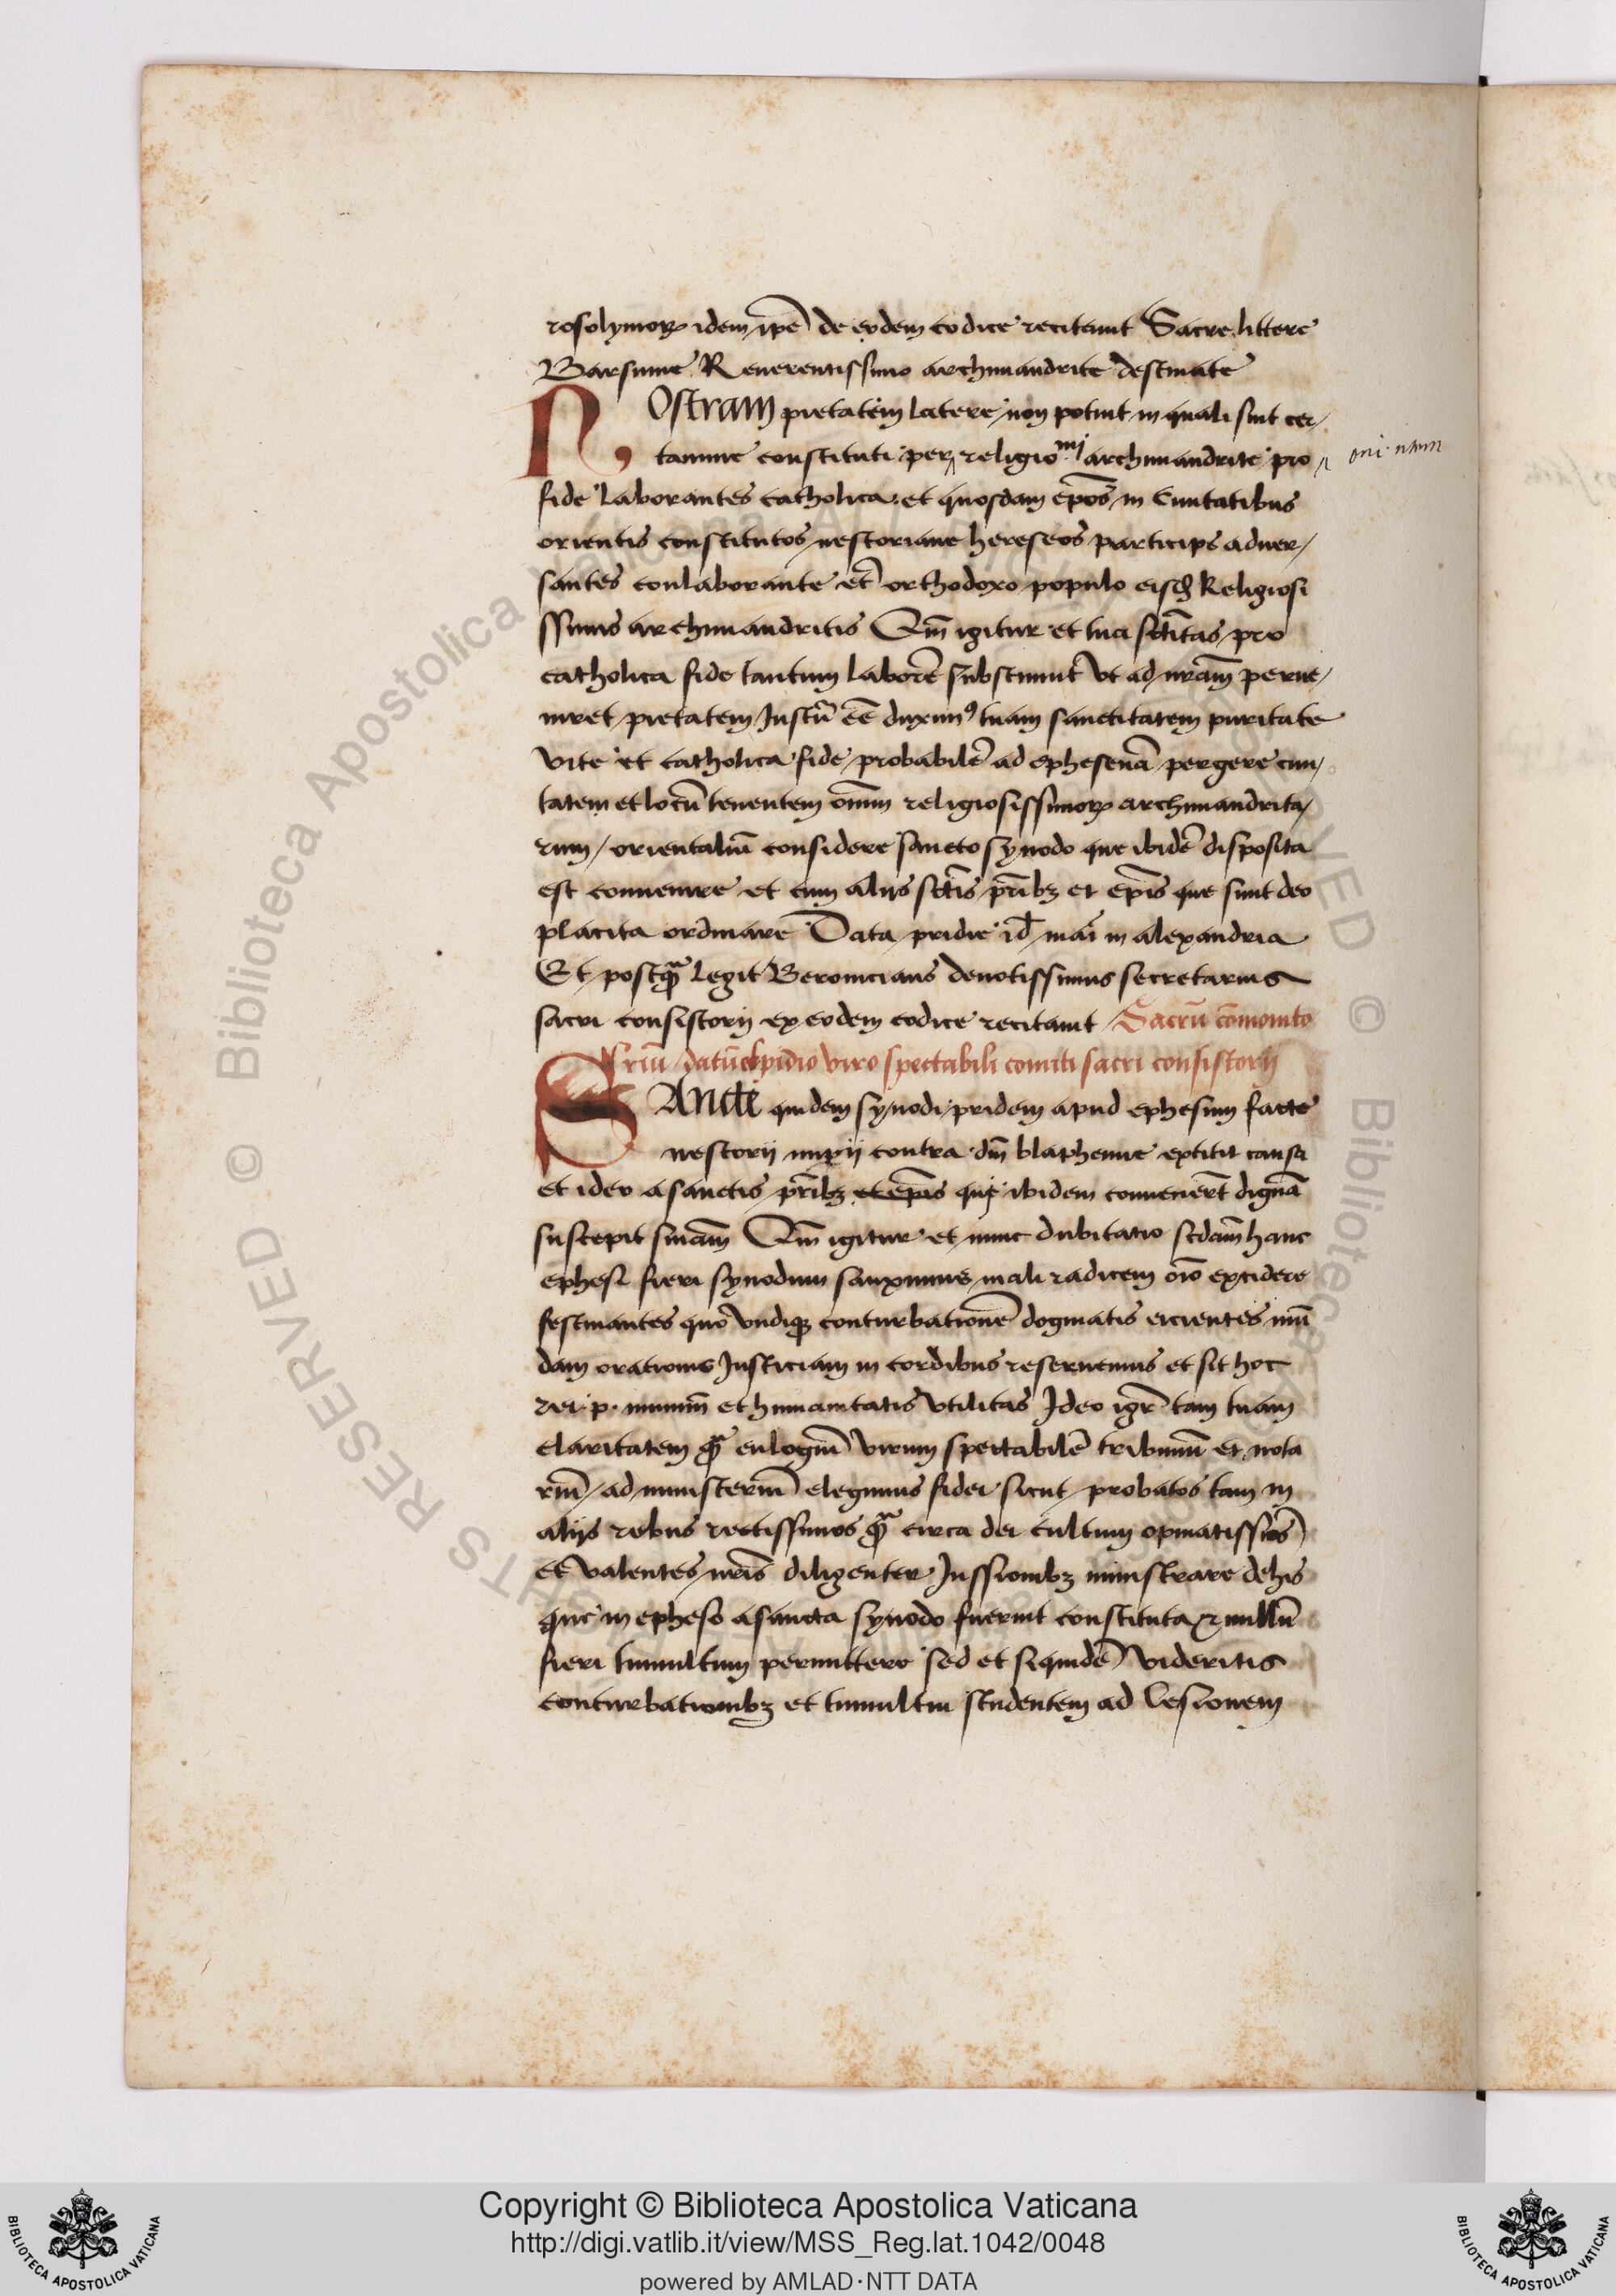 rosolymoꝝ idem ip̄e de eodem codice recitauit Sacre littere
Barsume Reuerentissimo archimandrite destinate
NOstram pietatem latere non potuit in quali sint cer/
tamine constituti per religio.mi archimandrite pro
ori nam
fide laborantes catholica et quosdam ep̄os in Ciuitatibus
orientis constitutos nestoriane hereseos participes aduer/
santes conlaborante et orthodoxo populo eisdē Religiosi
ssimis archimandritis Qm̄ igitur et tua sc̄titas pro
catholica fide tantum laborē substinuit vt ad nr̄am perue/
niret pietatem Iustū eē duximꝰ tuam sanctitatem puritate
vite et catholica fide probabilē ad ephesenā pergere ciui/
tatem et locū tenentem om̄im religiosissimoꝝ archimandrita/
rum / orientaliū considere sancto synodo que ibidē disposita
est conuenire et cum alijs sc̄tis pr̄ibꝫ et ep̄is que sunt deo
placita ordinare Data pridie id̄ mai in alexandria
Et postqᷓ legit Beronicianus deuotissimus secretarius
sacri consistorij ex eodem codice recitauit Sacrū cōmonito
riū datū elpidio viro spectabili comiti sacri consistorij
SAncte quidem synodi pridem apud ephesum facte
nestorij impij contra dm̄ blaphemie extitit causa
et ideo a sanctis pr̄ibꝫ et ep̄is qui ibidem conuenerūt dignā
suscepit sn̄iam Qm̄ igitur et nunc dubitatio sc̄dam hanc
ephesi fieri synodum sanximus mali radicem oīo excidere
festinantes quo vndiqꝫ conturbationē dogmatis eicientes mū
dam orationis Iusticiam in cordibus reseruemus et sit hoc
rei .p. munim̄ et humanitatis vtilitas Ideo igr̄ tam tuam
claritatem qᷓ eulogiū virum spectabilē tribunū et nota
riū / ad ministeriū elegimus fidei sicut probatos tam in
alijs rebus rectissimos qᷓ circa dei cultum opinatissīos
et valentes nr̄is diligenter Iussionibꝫ ministrare de his
que in epheso a sancta synodo fuerint constituta et nullū
fieri tumultum permittere sed et siquidē videritis
conturbationibꝫ et tumultui studentem ad lesionem
Copyright © Biblioteca Apostolica Vaticana
http://digi.vatlib.it/view/MSS_Reg.lat.1042/0048
powered by AMLAD·NTT DATA